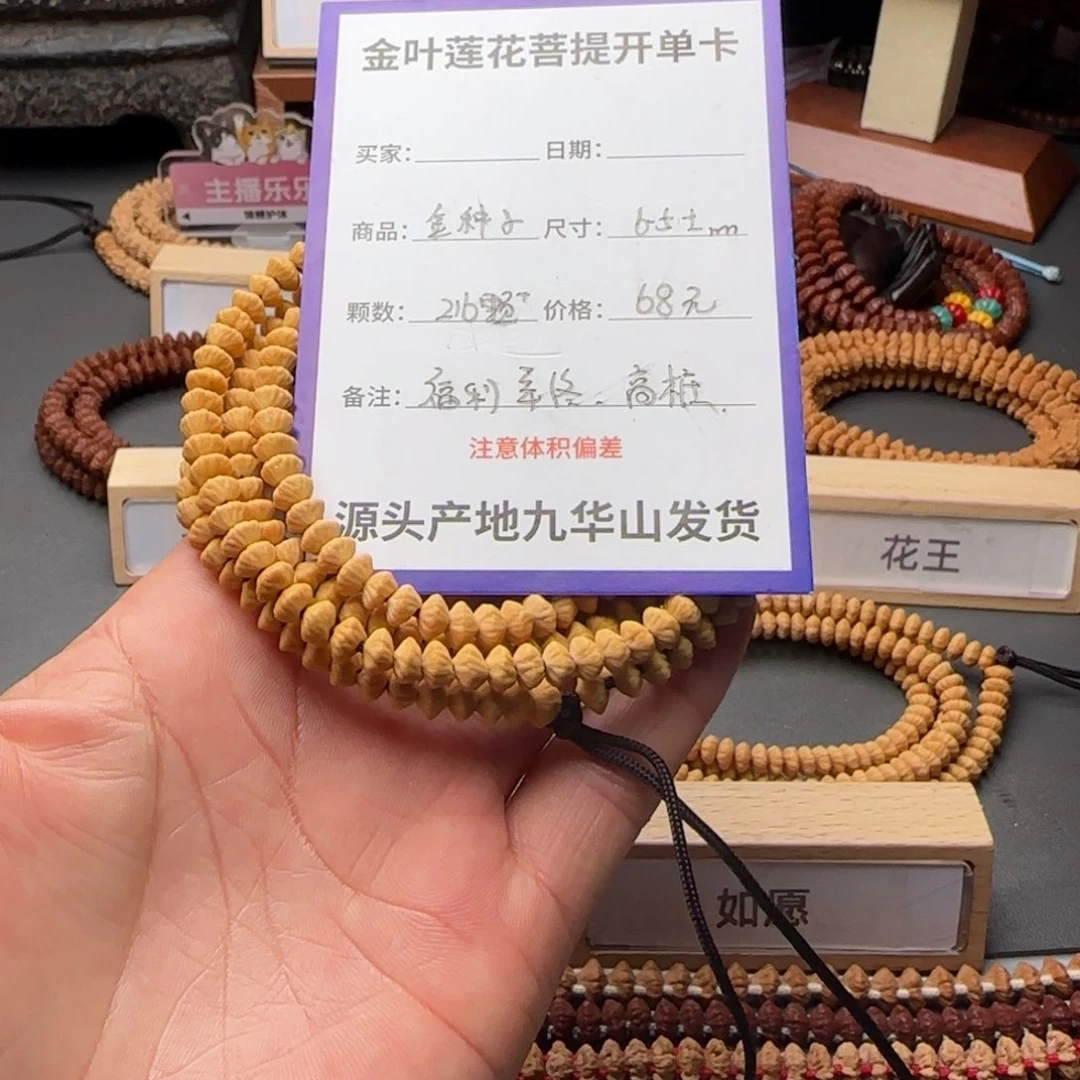 金叶莲花菩提开单卡
买家： 日期：
商品：金种子 尺寸：
颗数：216颗 价格：68元
备注：福利 高桩
注意体积偏差
源头产地九华山发货
主播乐乐
花王
如愿